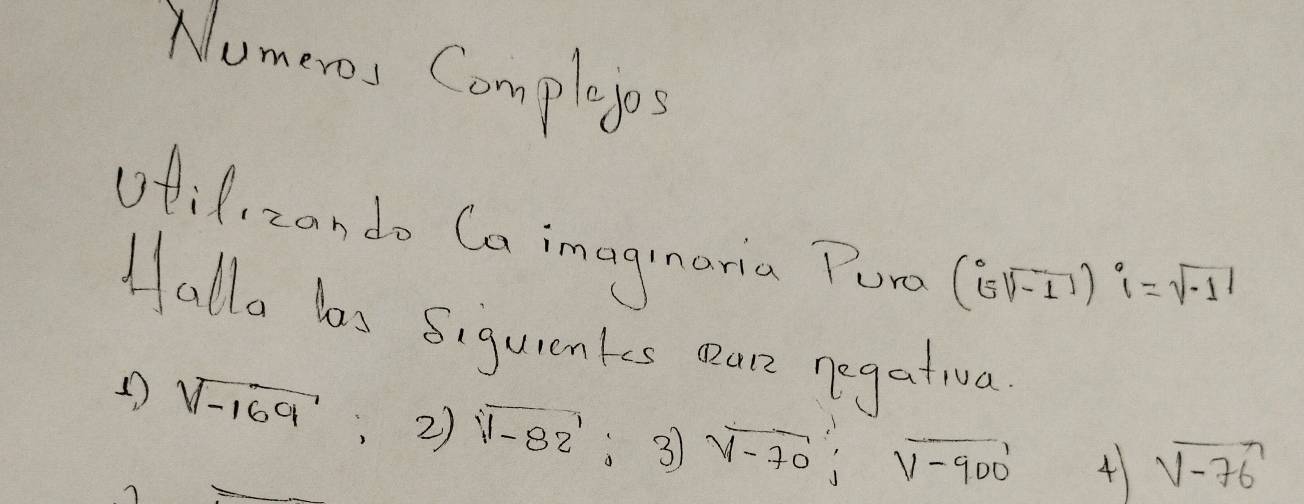 Numeros Complejos
Utilizando la imaginaria Pura (i=√-1) i=√-1
Halla las siguientes Raiz negativa.
1) √-169 ; 2) √-82 ; 3) √-70 ; √-900 4) √-76